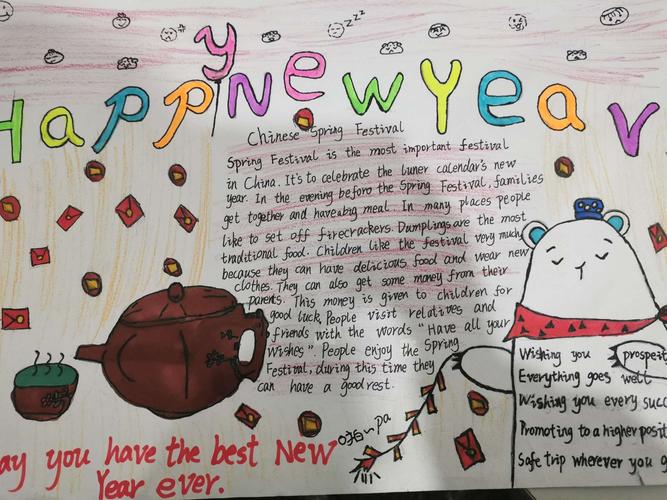 Happy New Year
Chinese Spring Festival
Spring Festival is the most important festival
in China. It's to celebrate the luner calendar's new
year. In the evening before the Spring Festival, families
get together and have a big meal. In many places people
like to set off firecrackers. Dumplings are the most
traditional food. Children like the festival very much,
because they can have delicious food and wear new
clothes. They can also get some money from their
parents. This money is given to children for
good luck. People visit relatives and
friends with the words "Have all your
wishes" People enjoy the Spring
Festival, during this time they
can have a good rest.
Wishing you prosperit
Everything goes well
Wishing you every succ
Promoting to a higher posit
Safe trip wherever you g
pa
ay you have the best New
Year ever.